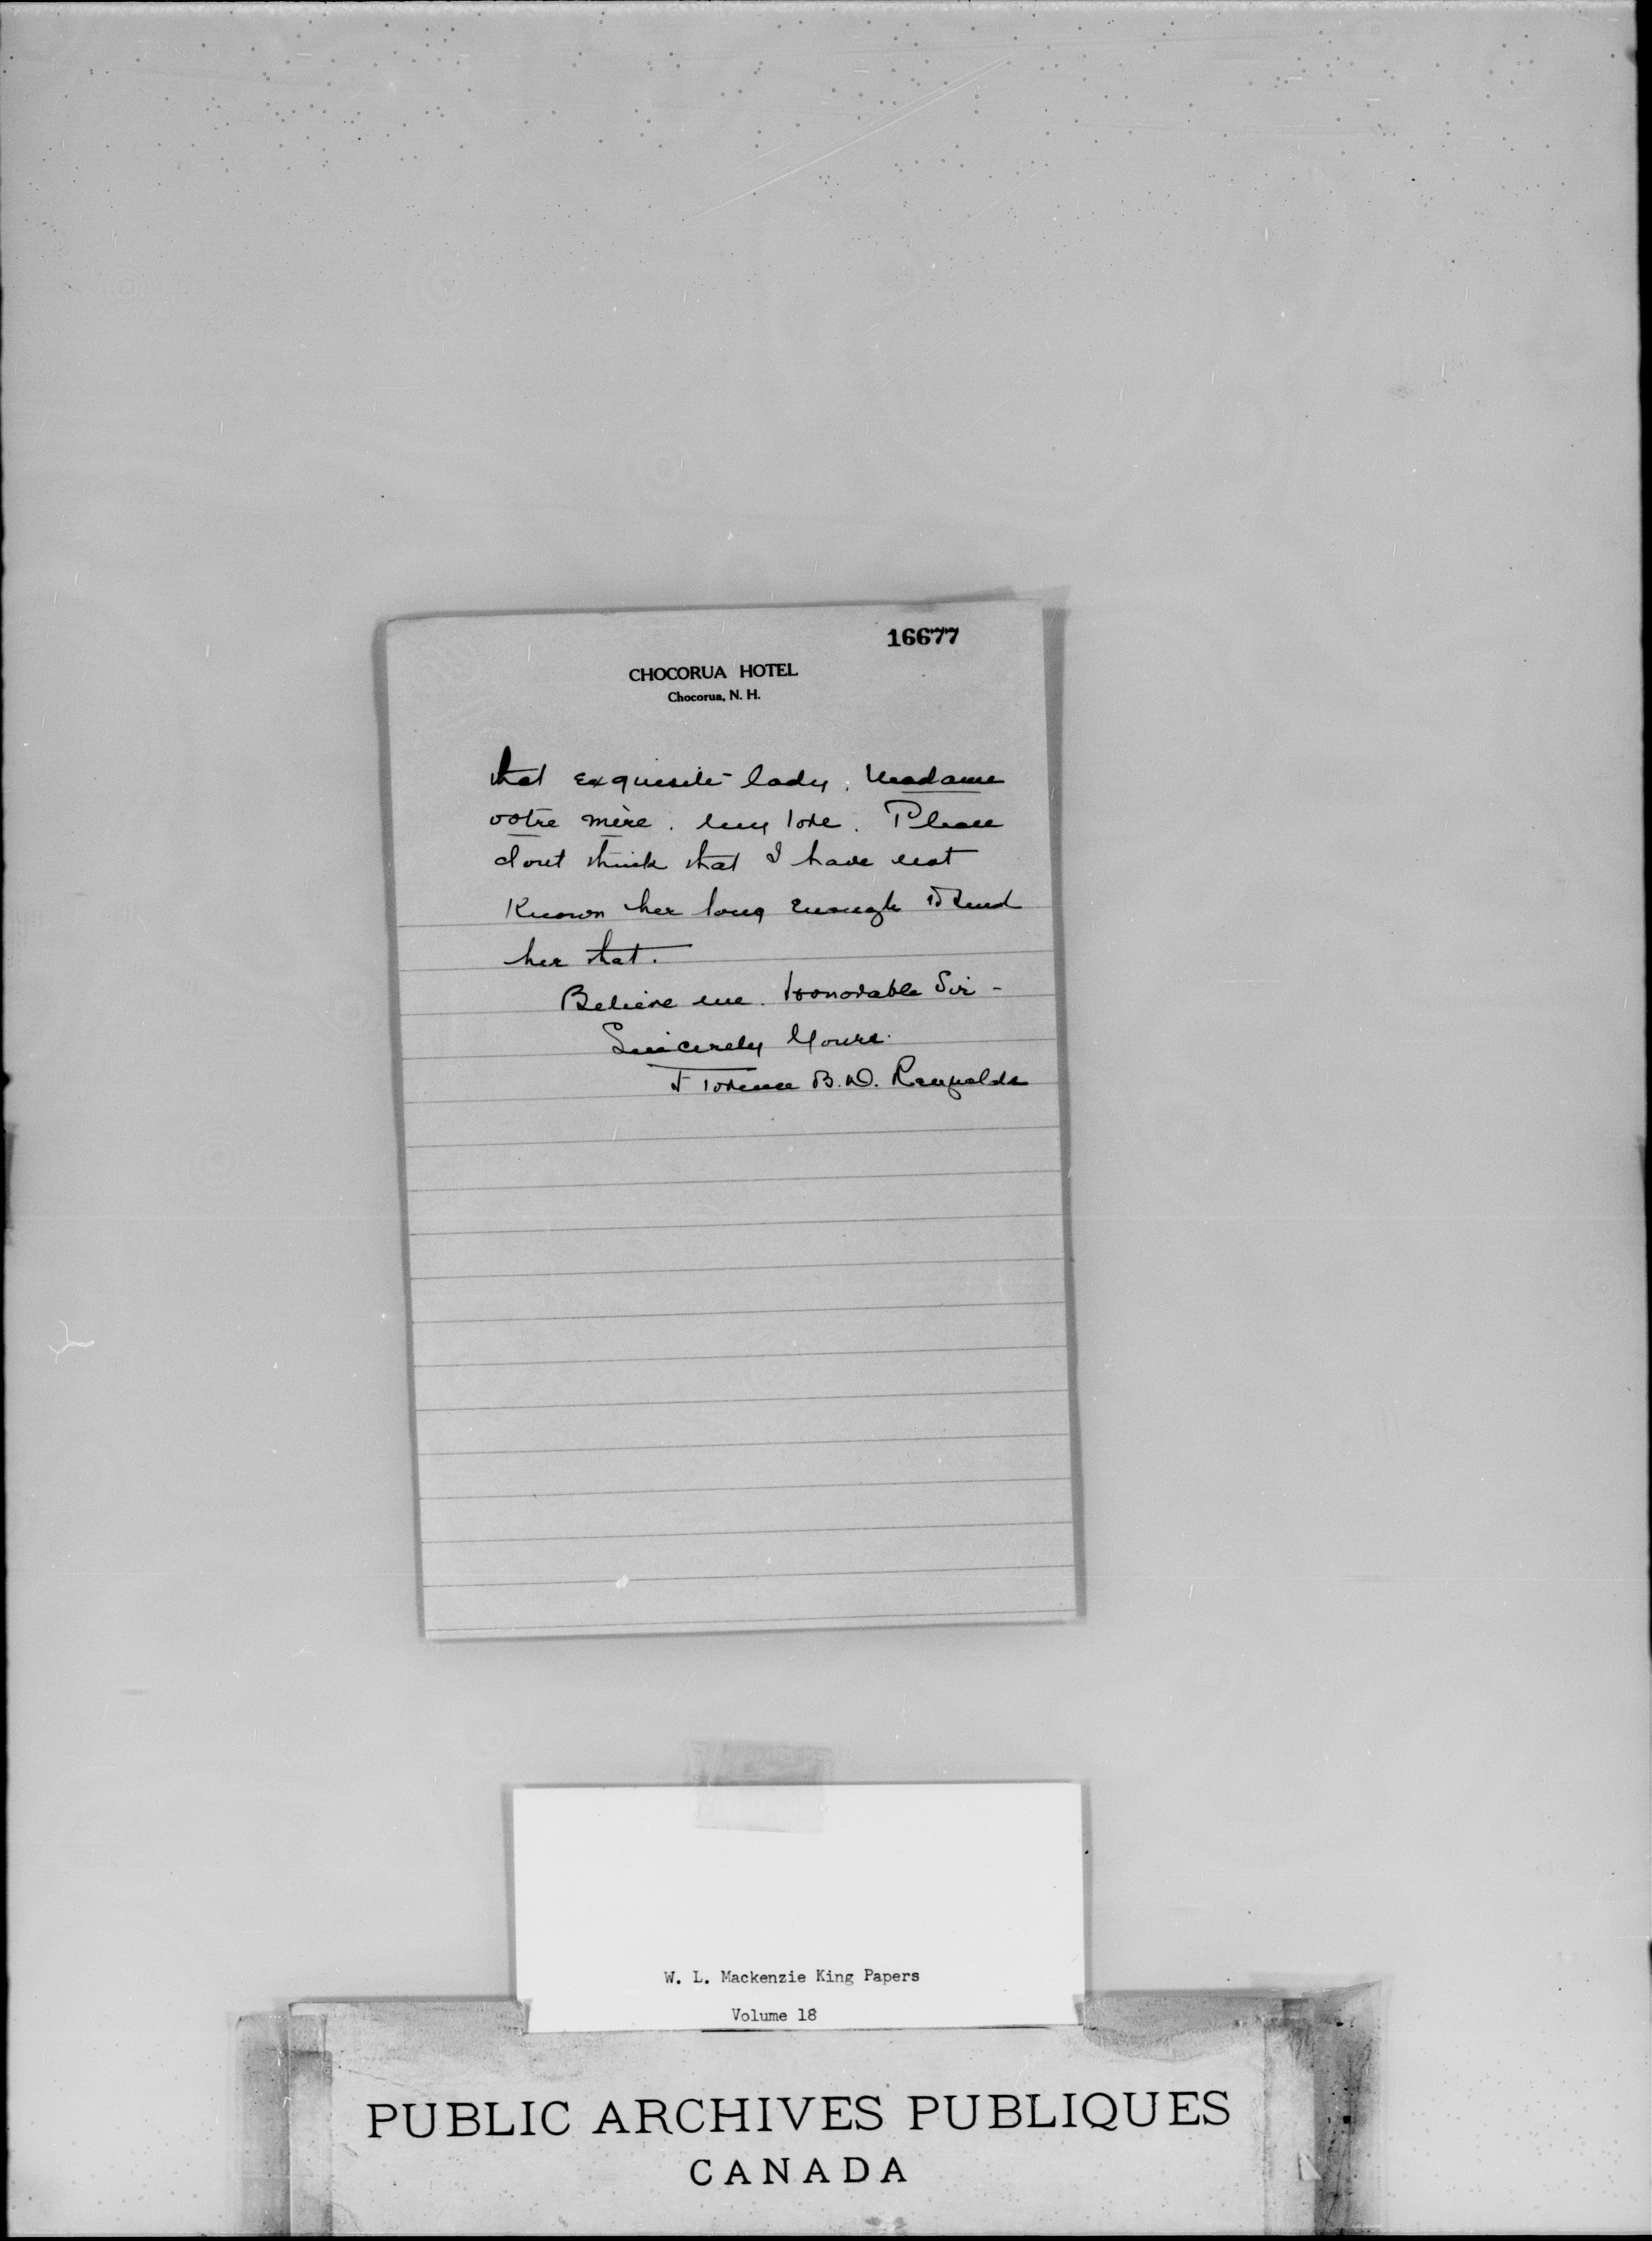 16677
CHOCORUA HOTEL
Chocorua, N. H.
that exquisite lady, Madame
votre mère, my love. Please
dont think that I have not
Known her long enough to send
her that.
Believe me. Honorable Sir -
Sincerely Yours.
Florence B. W. Reynolds
W. L. Mackenzie King Papers
Volume 18
PUBLIC ARCHIVES PUBLIQUES
CANADA